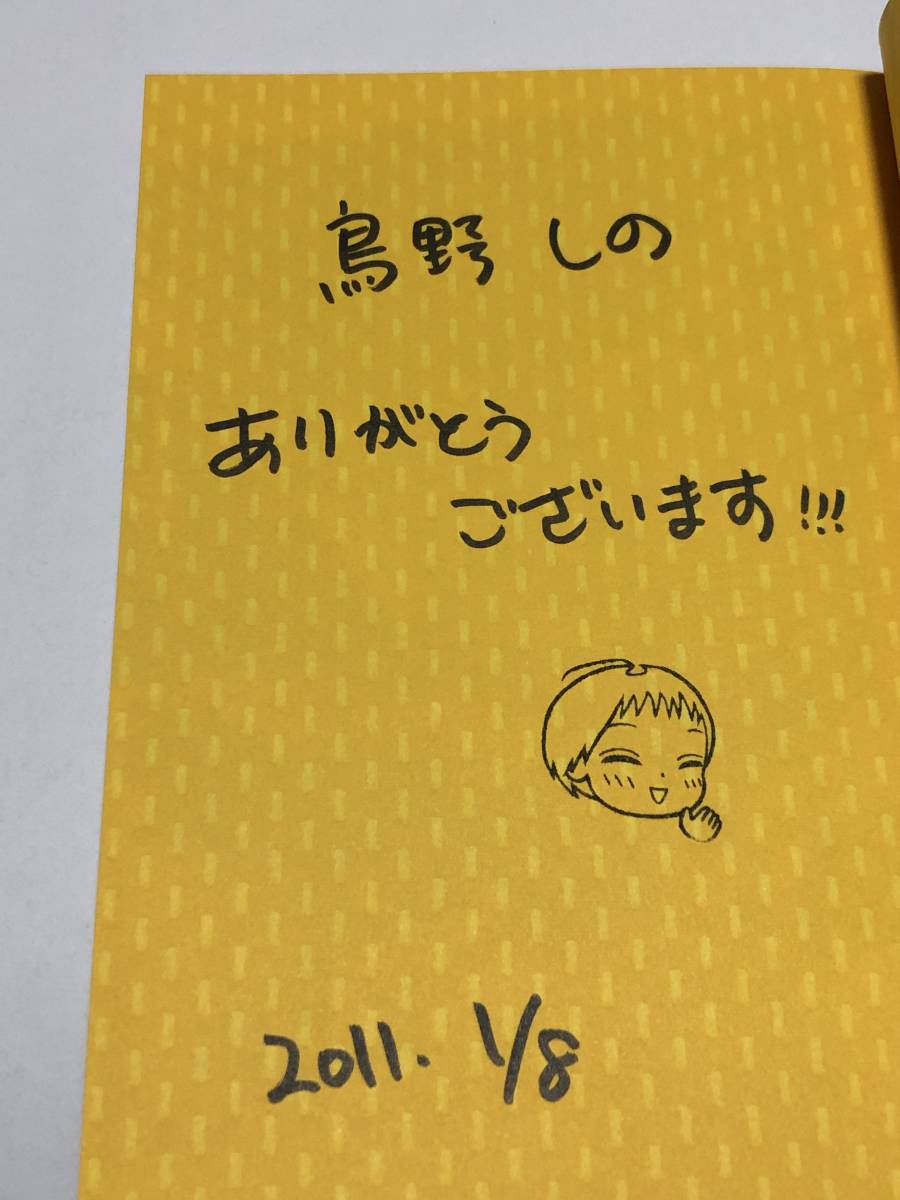 鳥野 しの
ありがとう
ございます!!!
2011. 1/8